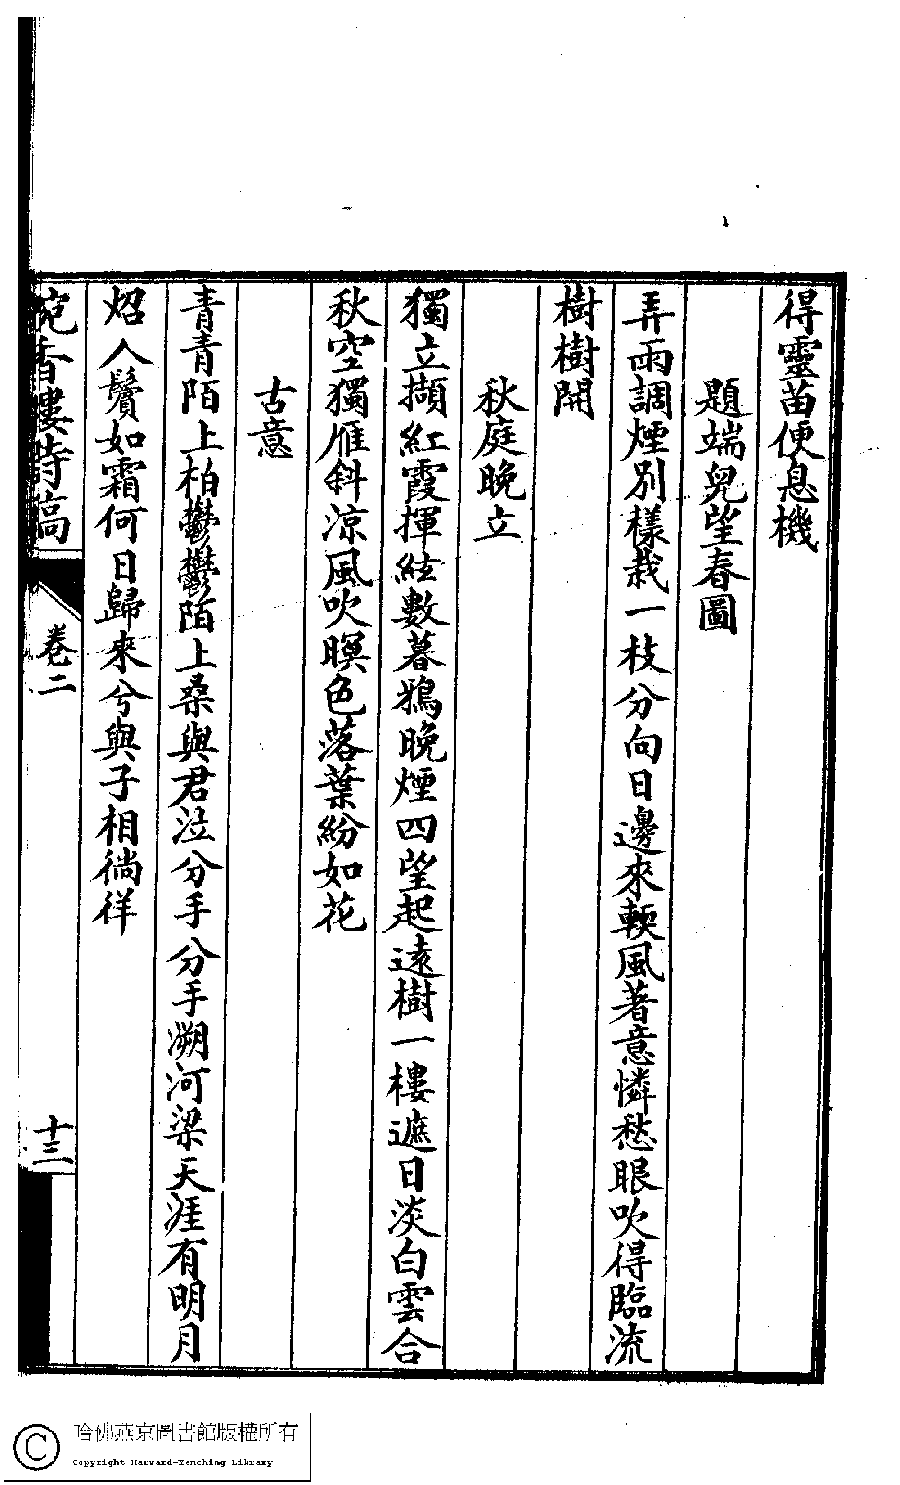 得靈苗便息機
題端兒望春圖
弄雨調煙別樣栽一枝分向日邊來輭風著意憐愁眼吹得臨流
樹樹開
秋庭晚立
獨立擷紅霞揮絃數暮鴉晚煙四望起遠樹一樓遮日淡白雲合
秋空獨雁斜涼風吹暝色落葉紛如花
古意
青青陌上柏鬱鬱陌上桑與君泣分手分手溯河梁天涯有明月
炤人鬢如霜何日歸來兮與子相徜徉
婉香樓詩稿
卷二
十三
哈佛燕京圖書館版權所有
Copyright Harvard-Yenching Library